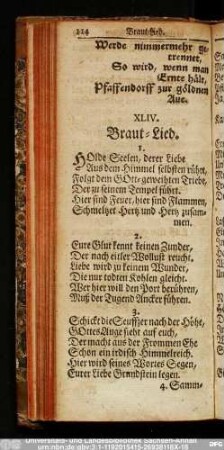 224 Braut-Ged.
Werde nimmermehr ge-
trennet,
So wird, wenn man
Ernte hält,
Pfaffendorff zur göldnen
Aue.
XLIV.
Braut-Lied.
1.
HOlde Seelen, derer Liebe
Aus dem Himmel selbsten rühret,
Folgt dem GOtt-geweihten Triebe,
Der zu seinem Tempel führt.
Hier sind Feuer, hier sind Flammen,
Schmeltzet Hertz und Hertz zusam-
men.
2.
Eure Glut kennt keinen Zunder,
Der nach eitler Wollust reucht.
Liebe wird zu keinem Wunder,
Die nur todten Kohlen gleicht.
Wer hier will den Port berühren,
Muß der Tugend Ancker führen.
3.
Schickt die Seuffzer nach der Höhe,
GOttes Auge sieht auf euch,
Der macht aus der Frommen Ehe
Schon ein irdisch Himmelreich.
Hier wird seines Wortes Segen,
Eurer Liebe Grundstein legen.
4. Samm-
Universitäts- und Landesbibliothek Sachsen-Anhalt